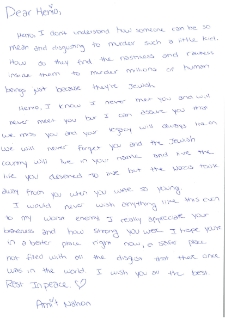 Dear Henio,
Henio, I dont understand how someone can be so
mean and disgusting to murder such a little kid.
How do they find the and
inside them to murder millions of human
beings just because they're Jewish.
Henio, I know I never met you and will
never meet you but I can assure you that
we miss you and your legacy will always be in
we will never forget you and the Jewish
country will live in your name and live the
life you deserved to live but the Nazis took
away from you when you were so young.
I would never wish anything like this even
to my worst enemy I really appreciate your
braveness and how strong you were I hope you're
in a better place right now, a safe place
not filled with all the disgust that once
was in the world. I wish you all the best.
Rest In peace ♡
Amit